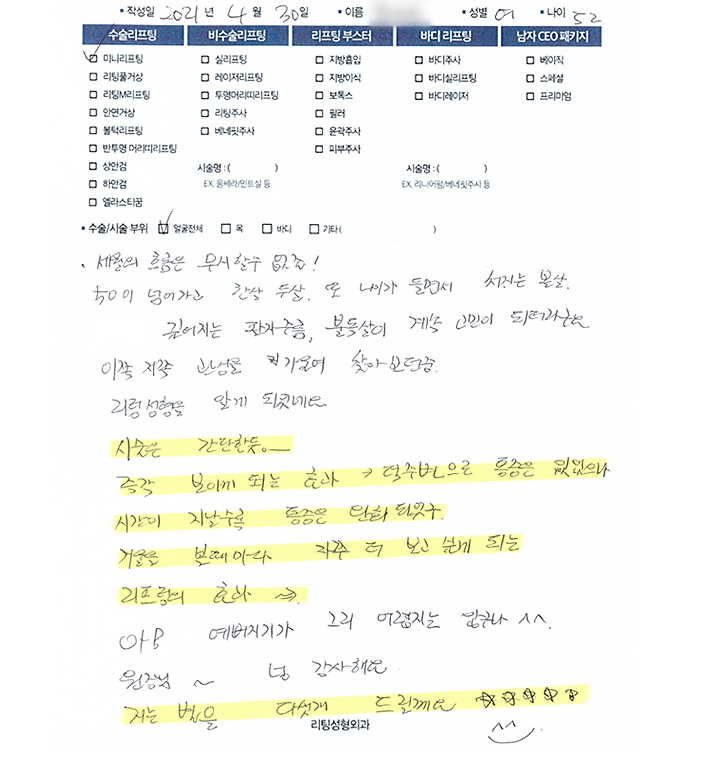 • 작성일 2021 년 4 월 30 일 • 이름 • 성별 여 • 나이 52
수술리프팅 비수술리프팅 리프팅 부스터 바디 리프팅 남자 CEO 패키지
미니리프팅 실리프팅 지방흡입 바디주사 베이직
리팅풀거상 레이저리프팅 지방이식 바디실리프팅 스페셜
리팅M리프팅 투명머리띠리프팅 보톡스 바디레이저 프리미엄
안면거상 리팅주사 필러
볼턱리프팅 베네핏주사 윤곽주사
반투명 머리띠리프팅 피부주사
상안검 시술명 : ( ) 시술명 : ( )
하안검 EX. 울쎄라/민트실 등 EX. 리니어펌/베네핏주사 등
엘라스티꿈
• 수술/시술 부위 얼굴전체 목 바디 기타( )
세월의 흐름은 무시할수 없죠!
50이 넘어가고 한살 두살. 또 나이가 들면서 처지는 볼살.
깊어지는 팔자주름, 불독살이 계속 고민이 되더라구요
이쪽 저쪽 관심을 기울여 찾아보던중.
리팅성형을 알게 되었네요
시술은 간단한듯.
즉각 보이게 되는 효과 → 턱주변으로 통증은 있었으나
시간이 지날수록 통증은 완화 되었구.
거울을 볼때마다 자꾸 더 보고 싶게 되는
리프팅의 효과
아흥 예뻐지기가 그리 어렵지는 않구나 ^^.
원장님 ~ 넘 감사해요.
저는 별을 다섯개 드릴께요 ☆☆☆☆☆
리팅성형외과 ^^